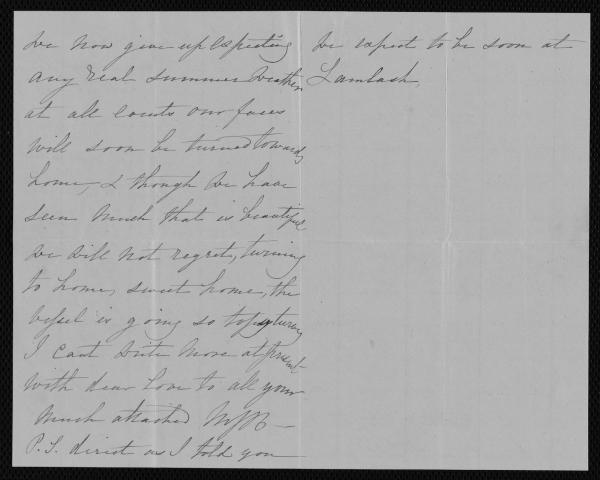 We now give up expecting
any real summer weather
at all events our faces
will soon be turned towards
home, & though we have
seen much that is beautiful
we will not regret, turning
to home, sweet home, the
vessel is going so topsyturvy
I cant write more at present
With dear love to all your
much attached
P.S. direct as I told you
We expect to be soon at
Lamlash